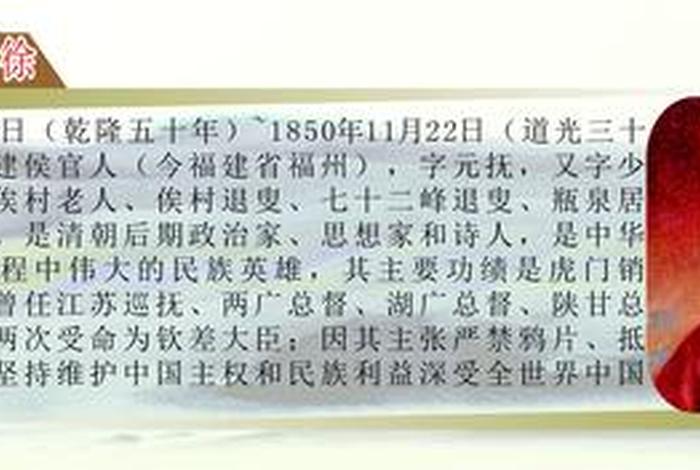 徐
日（乾隆五十年）~1850年11月22日（道光三十
建侯官人（今福建省福州），字元抚，又字少
俟村老人、俟村退叟、七十二峰退叟、瓶泉居
是清朝后期政治家、思想家和诗人，是中华
程中伟大的民族英雄，其主要功绩是虎门销
曾任江苏巡抚、两广总督、湖广总督、陕甘总
两次受命为钦差大臣；因其主张严禁鸦片、抵
坚持维护中国主权和民族利益深受全世界中国